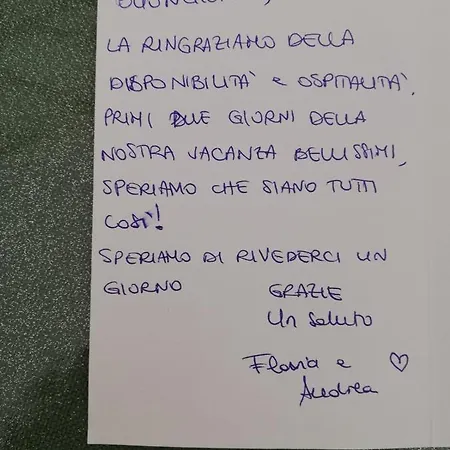 LA RINGRAZIAMO DELLA
DISPONIBILITA' e OSPITALITA'.
PRIMI DUE GIORNI DELLA
NOSTRA VACANZA BELLISSIMI,
SPERIAMO CHE SIANO TUTTI
COSI'!
SPERIAMO DI RIVEDERCI UN
GIORNO
GRAZIE
Un saluto
e
Andrea